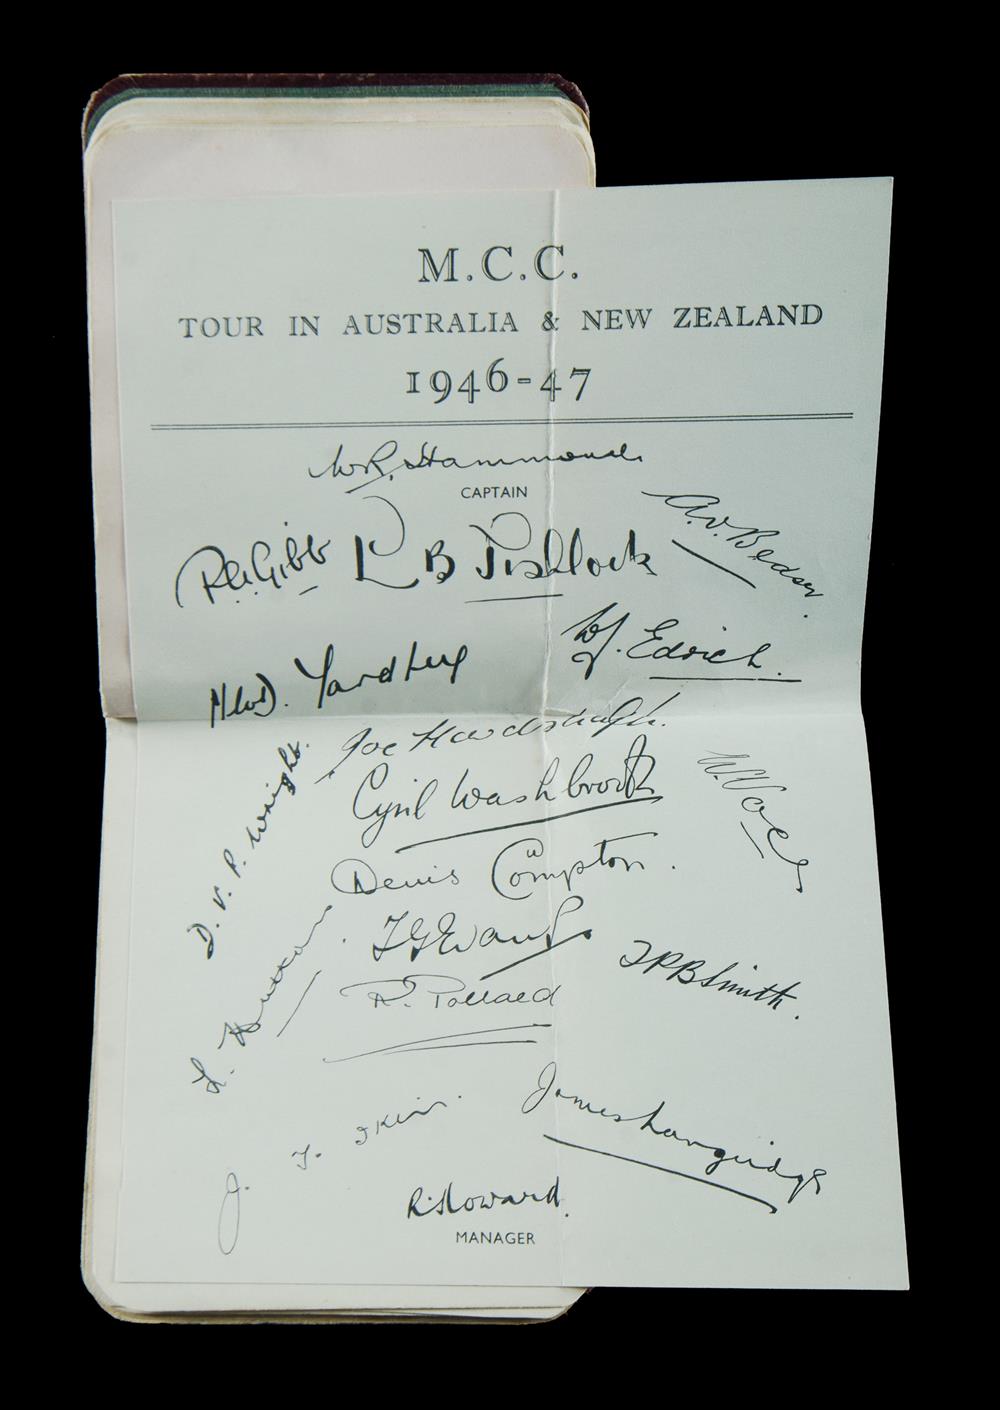 M.C.C.
TOUR IN AUSTRALIA & NEW ZEALAND
1946-47
W.R. Hammond
CAPTAIN
A.V. Bedser.
P.A. Gibb
L B Fishlock
W.J. Edrich.
N.W.D. Yardley
Joe Hardstaff Jr.
Cyril Washbrook
W. Voce
D.V.P. Wright.
Denis Compton.
T G Evans
L. Hutton.
T P B Smith.
R. Pollard
James Langridge
J. T. Ikin.
R. Howard.
MANAGER